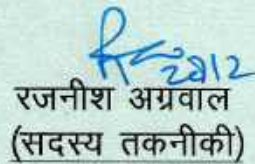 रजनीश अग्रवाल
(सदस्य तकनीकी)